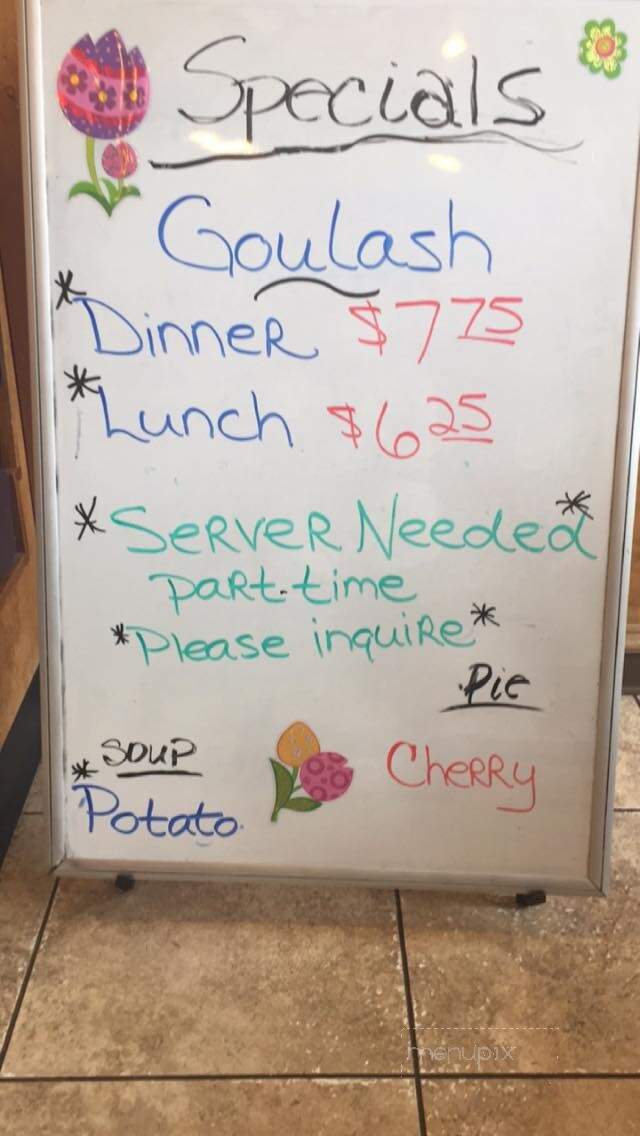 Specials
Goulash
*Dinner $7.75
*Lunch $6.25
*Server Needed*
part-time
*Please inquire*
Pie
Soup
Cherry
*Potato
menupix